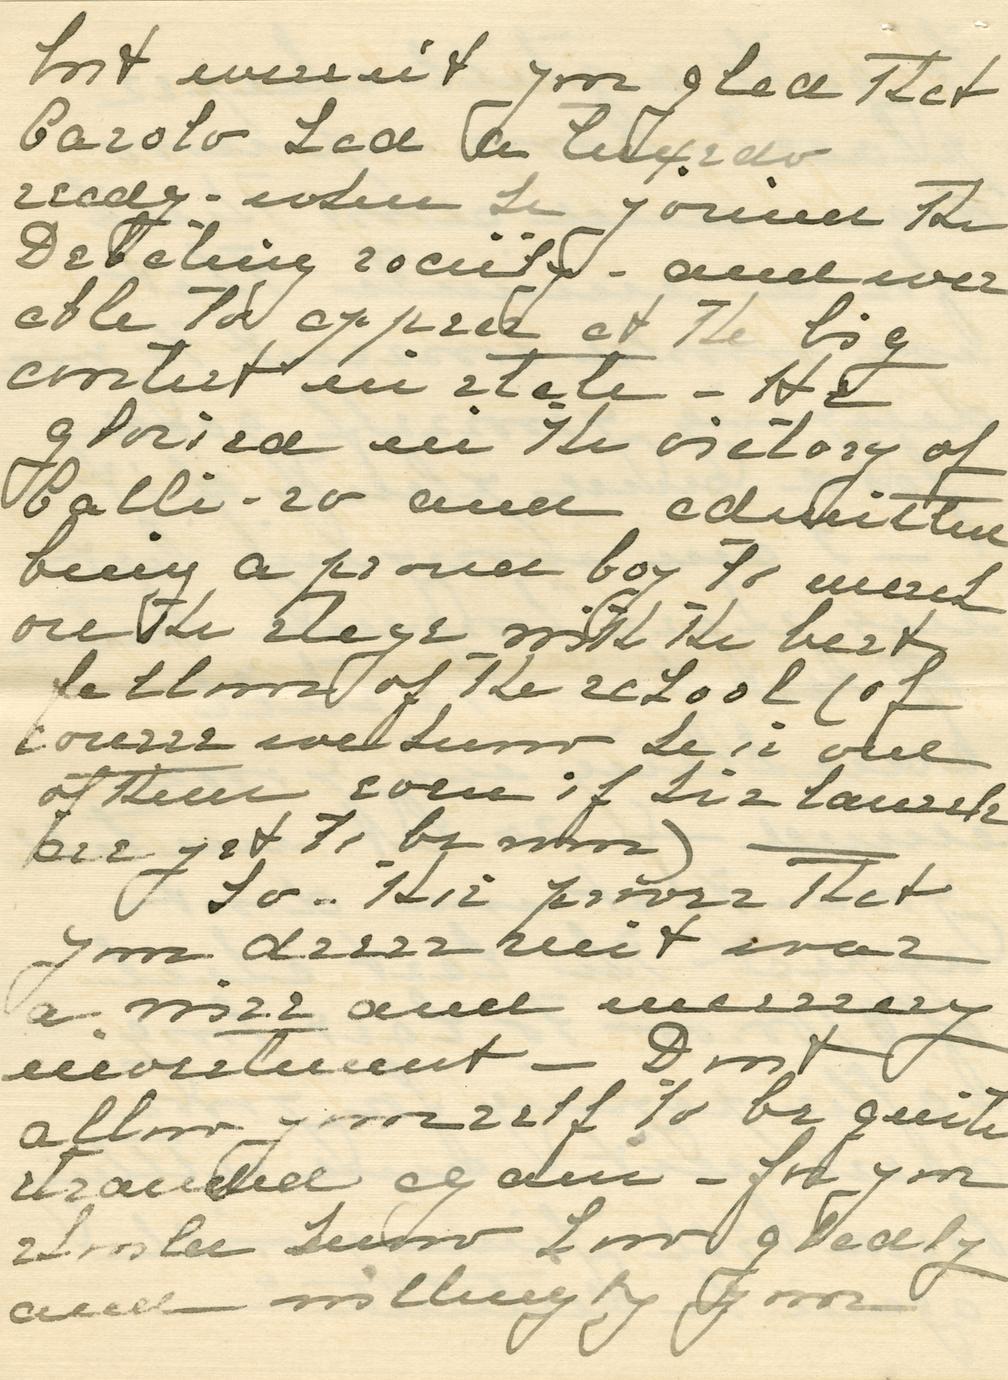 but weren't you glad that
Carolo had a tuxedo
ready - when he joined the
Debating society - and was
able to appear at the big
contest in state - He
gloried in the victory of
Calli-so and admitted
being a proud boy to march
on the stage with the best
fellows of the school (of
course we know he is one
of them even if his laurels
are yet to be won)
So.. this proves that
your dress suit was
a wise and necessary
investment - Dont
allow yourself to be quite
stranded again - for you
should know how gladly
and willingly your